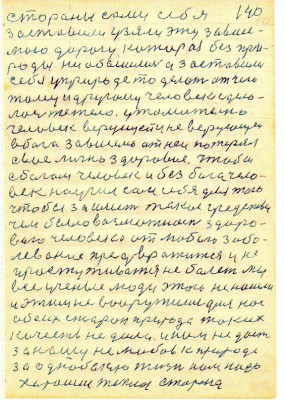 стораны сами себя 140
заставили узяли эту завис-
мою дорогу которая без при-
роды ни обошлась а заставила
себя уприроде то делать от чего
тому и другому человеку сдела-
лось тяжело. утомителено
человек верущий и не верующий
в бога зависел от неи потерял
свое лично здоровие. чтобы
сбогом человек и без бога чело-
век научил сам себя для того
чтобы за имет такое средства
чем было возможность здоро-
ваго человека от любого забо-
левание предвратится и не
простуживатся не болет мы
все ученые люди этого не нашли
и этим не вооружили для нас
обеих старон природа таких
качеств не дала. и ним не даст
за нашу не любов к природе
за однобокую жизн нам надо
хорошии теплая старона